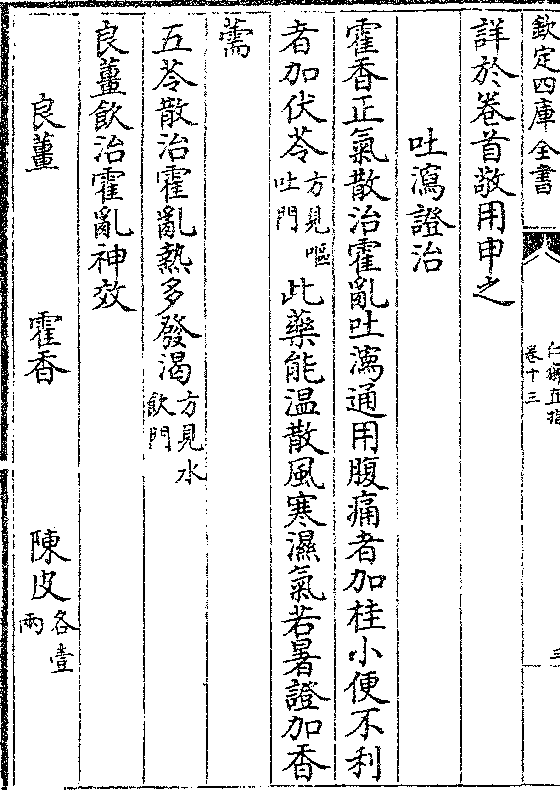 欽定四庫全書
仁齋直指
卷十三
詳於卷首敬用申之
吐瀉證治
霍香正氣散治霍亂吐瀉通用腹痛者加桂小便不利
者加伏苓方見嘔吐門此藥能温散風寒濕氣若暑證加香
薷
五苓散治霍亂熱多發渴方見水飲門
良薑飲治霍亂神效
良薑　霍香　陳皮各壹兩